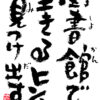 図書館で
生きるヒン
見つけ出す